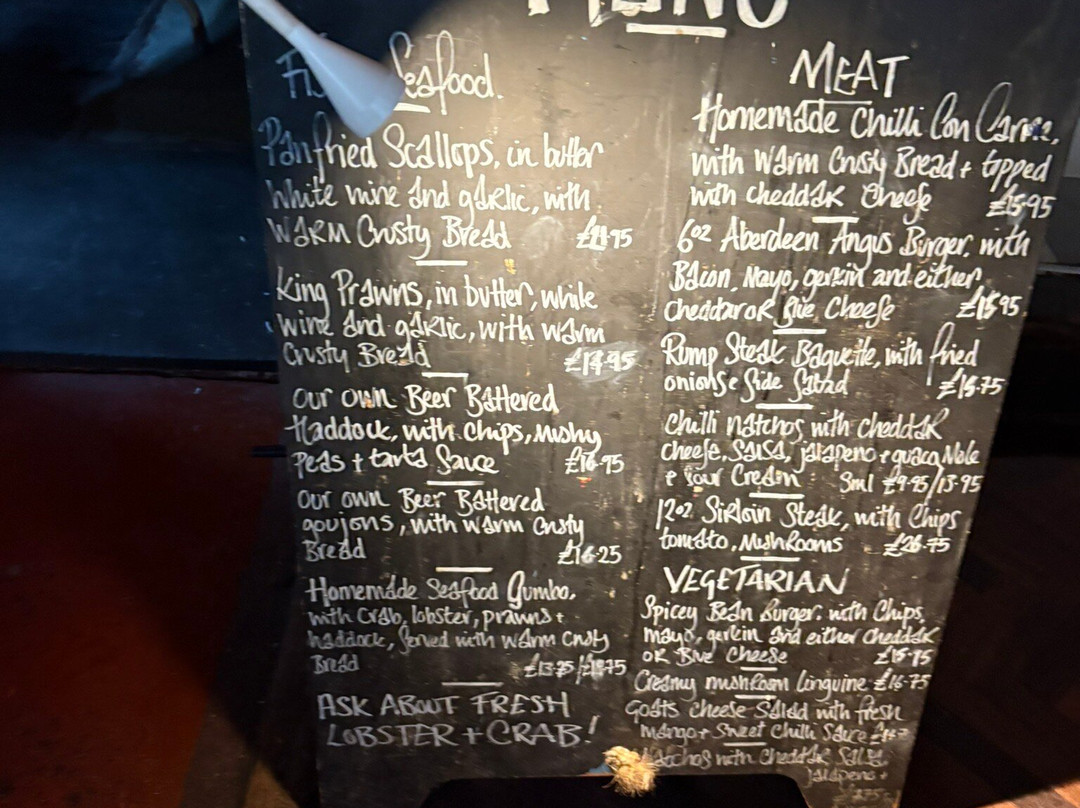 MENU
Seafood.
Panfried Scallops, in butter
White wine and garlic, with
WARM Crusty Bread
King Prawns, in butter, white
wine and garlic, with warm
Crusty Bread
our own Beer Battered
Haddock, with chips, mushy
Peas + tarta Sauce £16.95
our own Beer Battered
goujons, with warm crusty
Bread £16.25
Homemade Seafood Gumbo,
with Crab, lobster, prawns +
haddock, Served with warm crusty
Bread
ASK ABOUT FRESH
LOBSTER + CRAB!
MEAT
Homemade Chilli Con Carne,
with warm Crusty Bread + topped
with cheddar Cheese £15.95
6oz Aberdeen Angus Burger, with
Bacon, Mayo, gerkin and either
cheddar OR Blue Cheese £15.95
Rump Steak Baguette, with fried
onions & Side Salad
Chilli Natchos with cheddar
cheese, Salsa, jalapeno + guaca Mole
+ Sour Cream Sml £9.95/13.95
12oz Sirloin Steak, with Chips
tomato, mushrooms £26.75
VEGETARIAN
Spicey Bean Burger, with Chips,
mayo, gerkin and either cheddar
OR Blue Cheese £15.95
Creamy mushroom Linguine £16.75
Goats cheese Salad with fresh
Mango + Sweet Chilli Sauce
Natchos with Cheddar Salsa,
jalapeno +